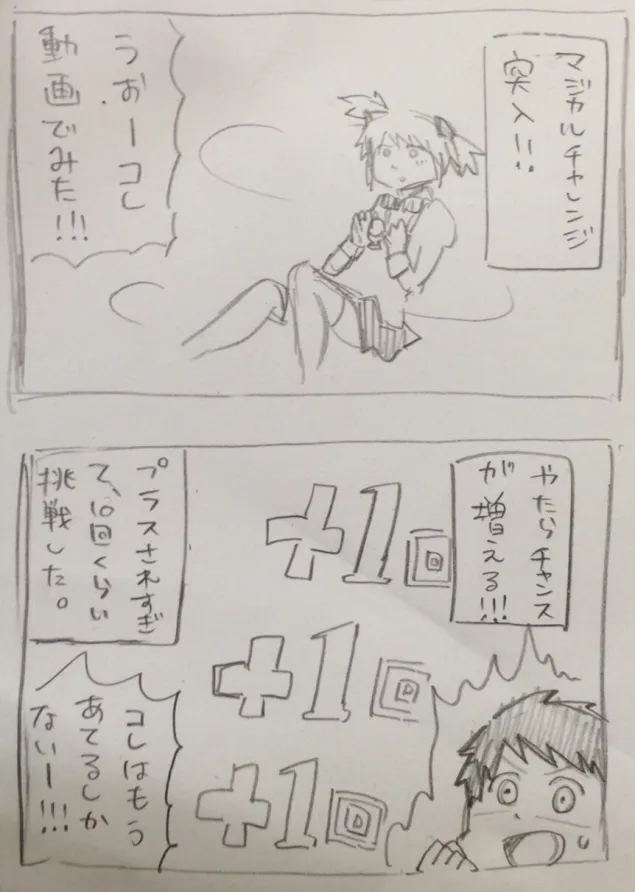 マジカルチャレンジ
突入!!
うおーコレ
動画でみた!!!
やたらチャンス
が増える!!!
+1回
+1回
+1回
プラスされすぎ
て、10回くらい
挑戦した。
コレはもう
あてるしか
ないー!!!